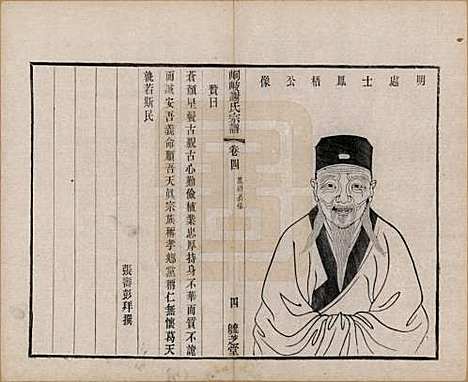 明處士鳳梧公像
峒岐謝氏宗譜
卷四
四
贊曰
蒼顏星鬢古貌古心勤儉植業忠厚持身不華而質
而誠安吾義命順吾天眞宗族稱孝鄉黨稱仁無懷葛天
斯民
張壽彭拜撰